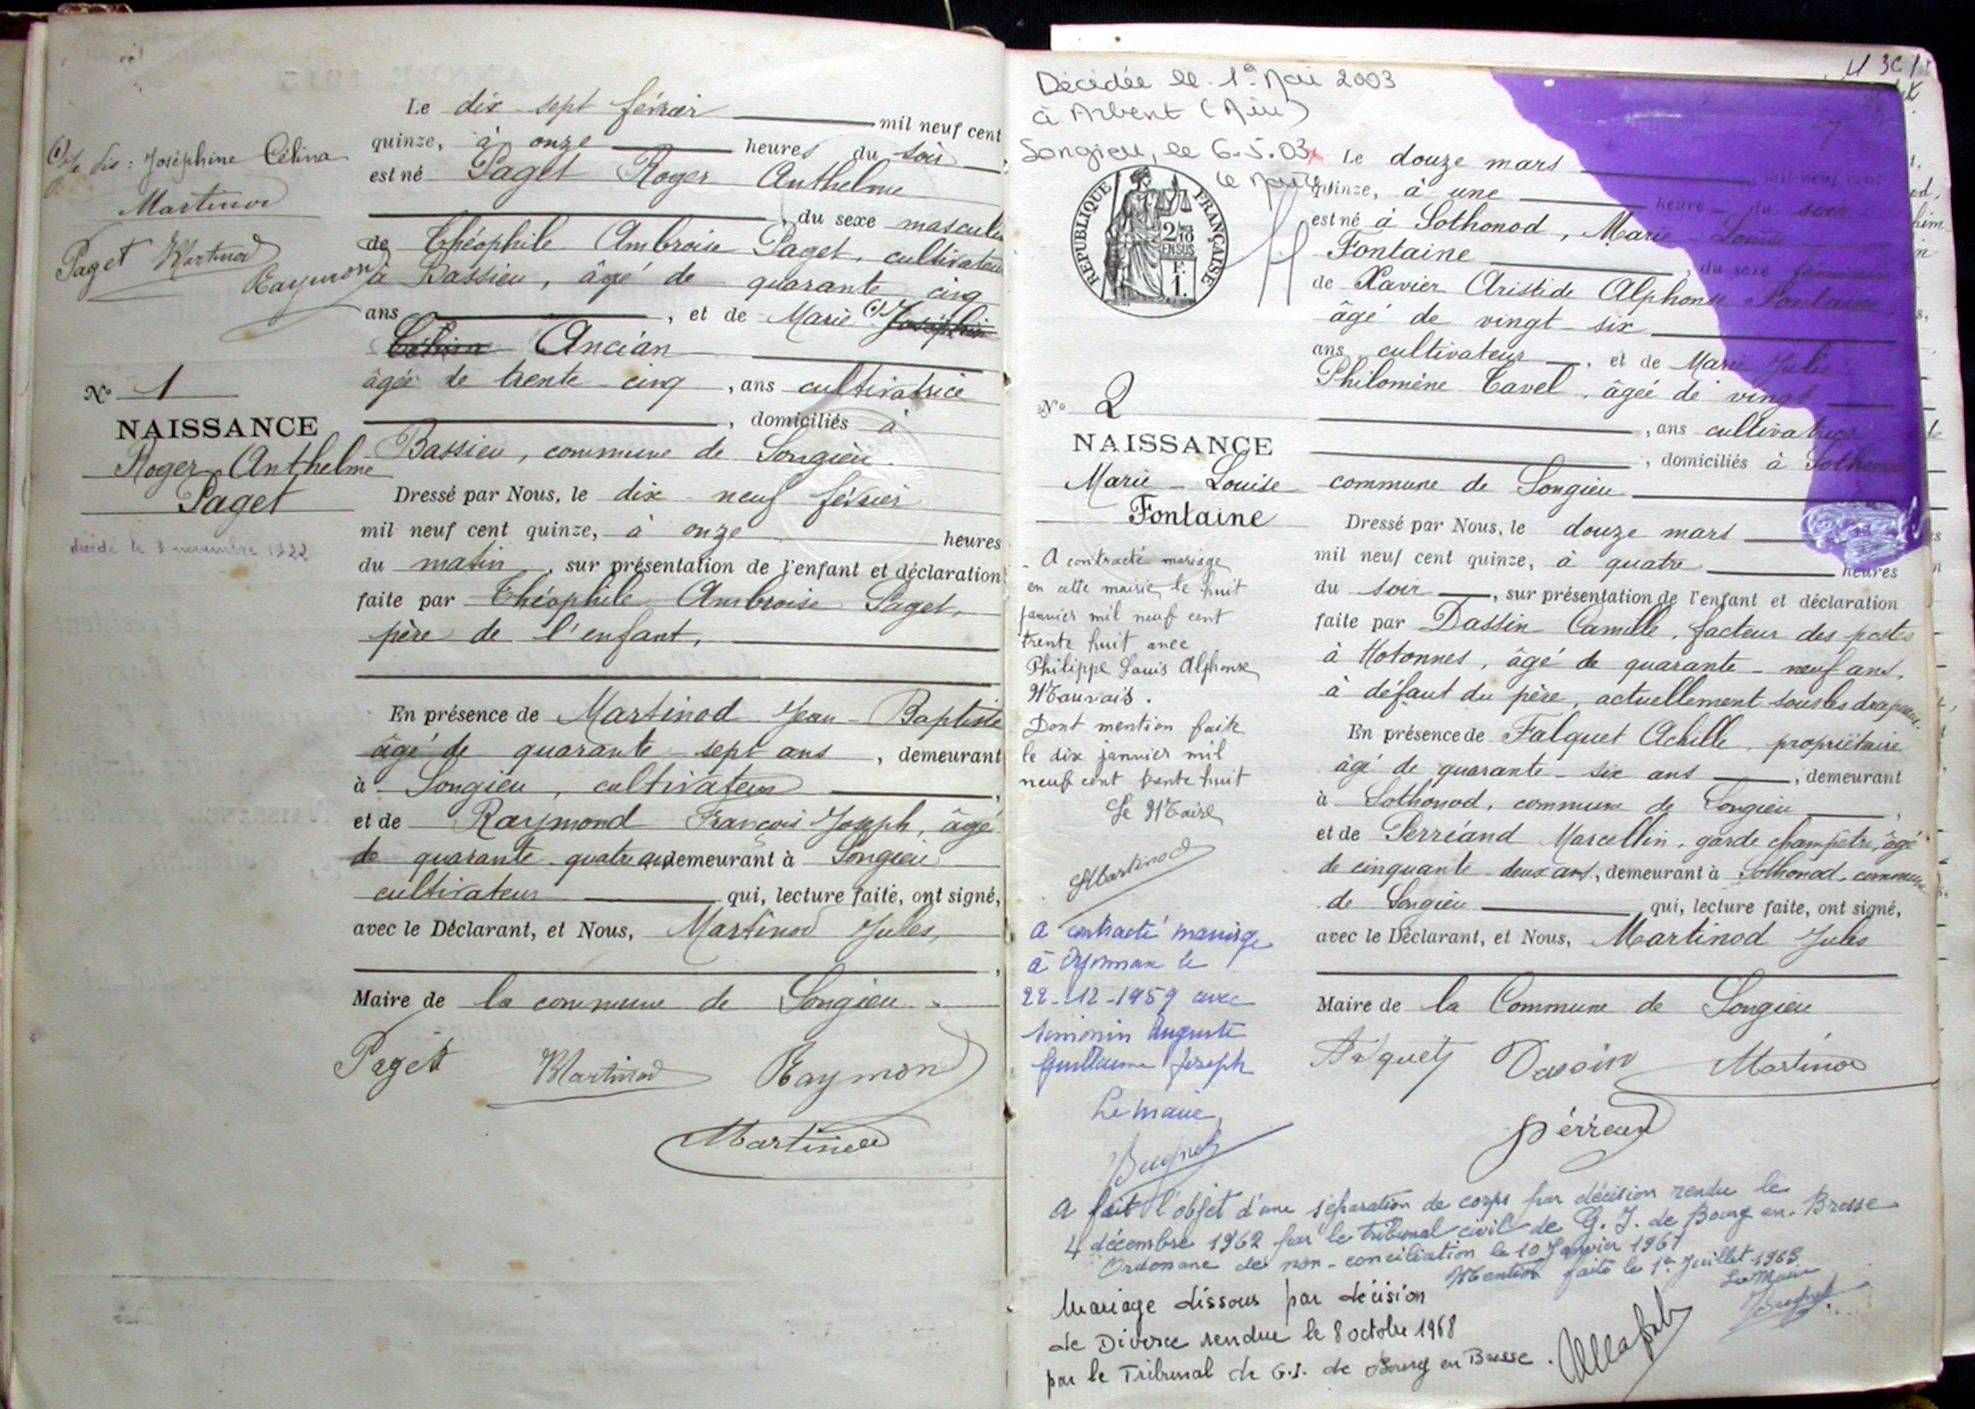 Le dix sept février mil neuf cent
quinze, à onze heures du soir
est né Paget Roger Anthelme
, du sexe masculin
de Théophile Ambroise Paget, cultivateur
à Bassieu, âgé de quarante cinq
ans , et de Marie (1) Joséphine
Célina Ancian
âgée de trente cinq , ans cultivatrice
, domiciliés à
Bassieu, commune de Songieu.
Dressé par Nous, le dix neuf février
mil neuf cent quinze, à onze heures
du matin , sur présentation de l'enfant et déclaration
faite par Théophile Ambroise Paget,
père de l'enfant,
En présence de Martinod Jean-Baptiste
âgé de quarante sept ans , demeurant
à Songieu, cultivateur ,
et de Raymond François Joseph, âgé
de quarante quatre ans demeurant à Songieu
cultivateur qui, lecture faite, ont signé,
avec le Déclarant, et Nous, Martinod Jules,
Maire de la commune de Songieu.
Paget Martinod Raymond
Martinod
(1) Joséphine Célina
Martinod
Paget Martinod
Raymond
N° 1
NAISSANCE
Roger Anthelme
Paget
décédé le 3 novembre 1922
Décédée le 1er Mai 2003
à Arbent (Ain)
Songieu, le 6.5.03
Le Maire
REPUBLIQUE FRANÇAISE
2/10
EN SUS
1 F.
N° 2
NAISSANCE
Marie-Louise
Fontaine
A contracté mariage
en cette mairie le huit
janvier mil neuf cent
trente huit avec
Philippe Louis Alphonse
Mauvais.
Dont mention faite
le dix janvier mil
neuf cent trente huit
Le Maire
Martinod
a contracté mariage
à Oyonnax le
22-12-1959 avec
Simonin Auguste
Guillaume Joseph
Le maire,
Le douze mars mil neuf cent
quinze, à une heure du soir
est né à Sothonod, Marie-Louise
Fontaine , du sexe féminin
de Xavier Aristide Alphonse Fontaine
âgé de vingt-six
ans cultivateur , et de Marie Julie
Philomène Tavel, âgée de vingt
, ans cultivatrice
, domiciliés à Sothonod
commune de Songieu
Dressé par Nous, le douze mars
mil neuf cent quinze, à quatre heures
du soir , sur présentation de l'enfant et déclaration
faite par Dassin Camille, facteur des postes
à Hotonnes, âgé de quarante-neuf ans,
à défaut du père, actuellement sous les drapeaux.
En présence de Falquet Achille, propriétaire
âgé de quarante-six ans , demeurant
à Sothonod, commune de Songieu ,
et de Perréand Marcellin, garde champêtre, âgé
de cinquante deux ans, demeurant à Sothonod, commune
de Songieu qui, lecture faite, ont signé,
avec le Déclarant, et Nous, Martinod Jules
Maire de la Commune de Songieu
Falquet Dassin Martinod
A fait l'objet d'une séparation de corps par décision rendu le
4 décembre 1962 par le tribunal civil de G.I. de Bourg en Bresse
Ordonnance de non-conciliation le 10 Janvier 1961
Mention faite le 1er Juillet 1963
Le Maire
Mariage dissous par décision
de Divorce rendue le 8 octobre 1968
par le Tribunal de G.I. de Bourg en Bresse.